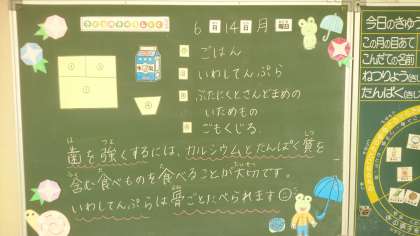 6月14日 月曜日
ごはん
いわしてんぷら
ぶたにくとさんどまめの
いためもの
ごもくじる
歯を強くするには、カルシウムとたんぱく質を
含む食べものを食べることが大切です。
いわしてんぷらは骨ごとたべられます
今日のきゅう
この月の目あて
こんだての名前
ねつりょう
たんぱく